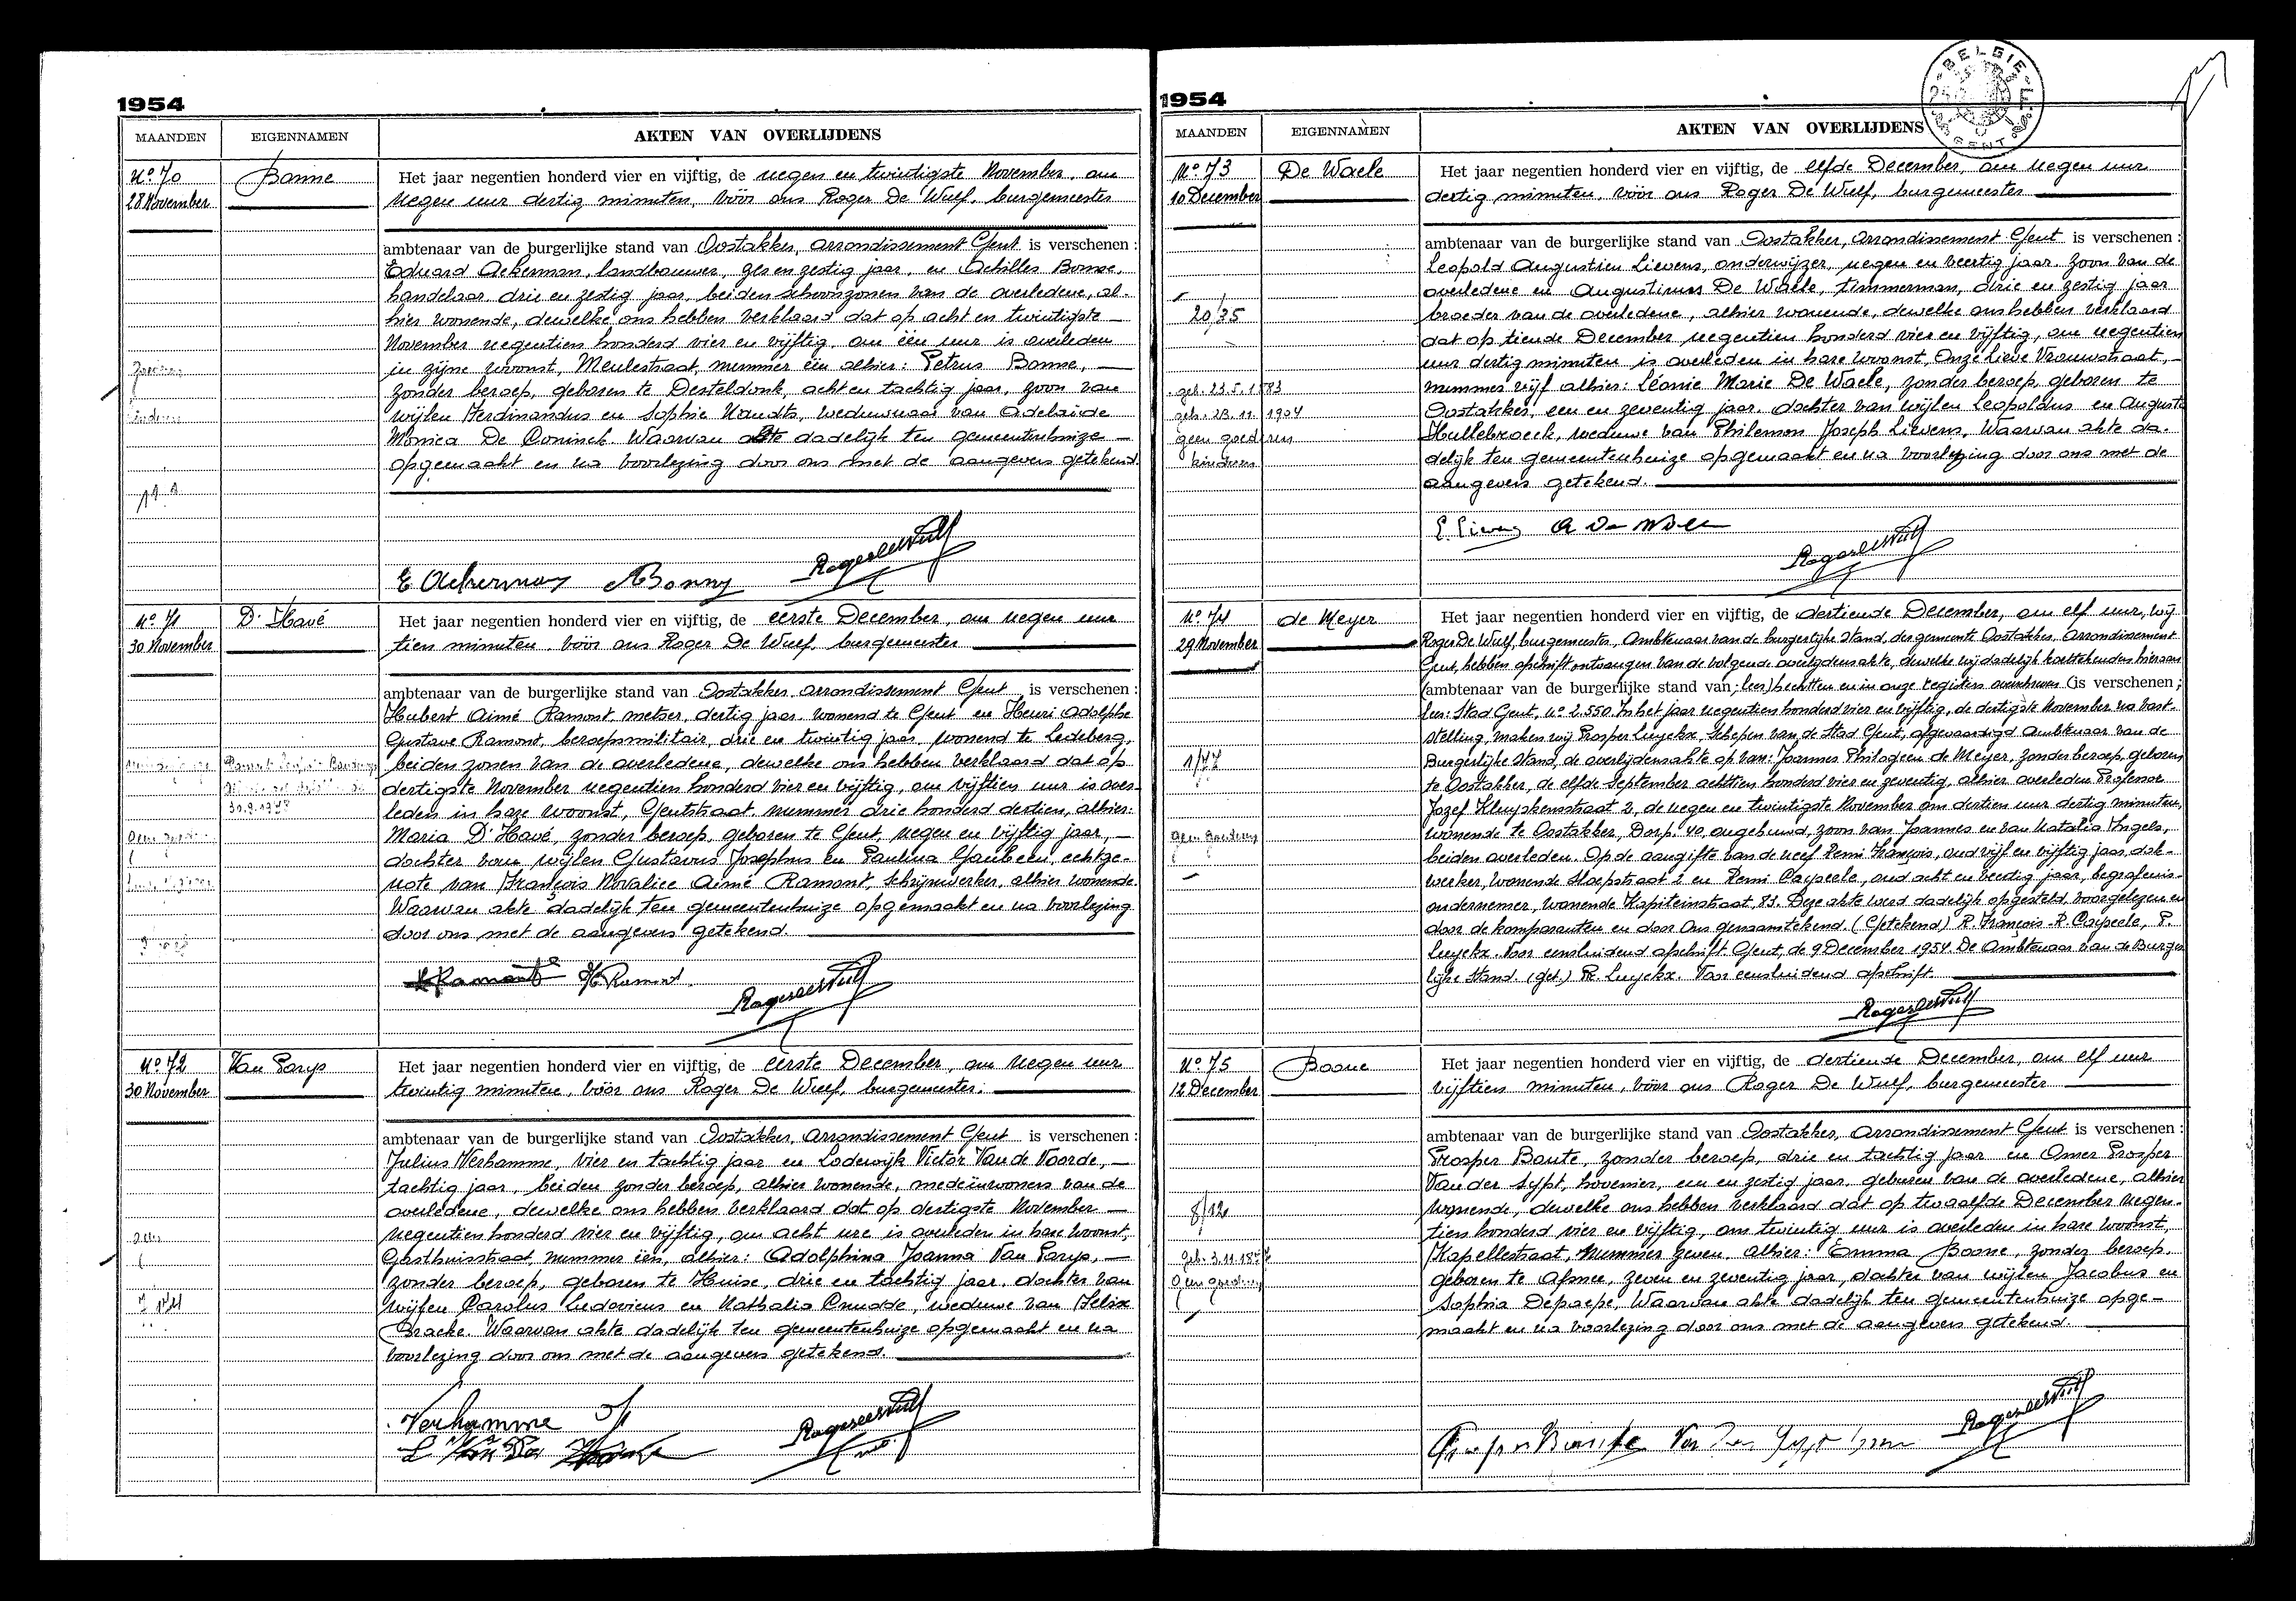 1954
MAANDEN EIGENNAMEN AKTEN VAN OVERLIJDENS
No 70 Bonne Het jaar negentien honderd vier en vijftig, de negen en twintigste November, om
28 November negen uur dertig minuten, vóór ons Roger De Wulf, burgemeester
ambtenaar van de burgerlijke stand van Oostakker, arrondissement Gent is verschenen:
Eduard Ackerman, landbouwer, zes en zestig jaar, en Achilles Bonne,
handelaar drie en zestig jaar, beiden schoonzonen van de overledene, al-
hier wonende, dewelke ons hebben verklaard dat op acht en twintigste
November negentien honderd vier en vijftig, om één uur is overleden
in zijne woonst, Meulestraat, nummer één alhier: Petrus Bonne,
zonder beroep, geboren te Desteldonk, acht en tachtig jaar, zoon van
wijlen Ferdinandus en Sophie Naudts, weduwnaar van Adelaide
Monica De Coninck. Waarvan akte dadelijk ten gemeentenhuize
opgemaakt en na voorlezing door ons met de aangevers getekend.
E Ackerman A Bonny Roger De Wulf
No 71 D'Havé Het jaar negentien honderd vier en vijftig, de eerste December, om negen uur
30 November tien minuten, vóór ons Roger De Wulf, burgemeester
ambtenaar van de burgerlijke stand van Oostakker, arrondissement Gent is verschenen:
Hubert Aimé Ramont, metser, dertig jaar, wonend te Gent en Henri Adolphe
Gustave Ramont, beroepsmilitair, drie en twintig jaar, wonend te Ledeberg,
beiden zonen van de overledene, dewelke ons hebben verklaard dat op
dertigste November negentien honderd vier en vijftig, om vijftien uur is over-
leden in hare woonst, Gentstraat, nummer drie honderd dertien, alhier:
Maria D'Havé, zonder beroep, geboren te Gent, negen en vijftig jaar,
dochter van wijlen Gustavus Josephus en Paulina Gaubeen, echtge-
note van François Novalice Aimé Ramont, schrijnwerker, alhier wonende.
Waarvan akte dadelijk ten gemeentenhuize opgemaakt en na voorlezing
door ons met de aangevers getekend.
Ramont H. Ramont Roger De Wulf
No 72 Van Parys Het jaar negentien honderd vier en vijftig, de eerste December, om negen uur
30 November twintig minuten, vóór ons Roger De Wulf, burgemeester.
ambtenaar van de burgerlijke stand van Oostakker, arrondissement Gent is verschenen:
Julius Verhamme, vier en tachtig jaar en Lodewijk Victor Van de Voorde,
tachtig jaar, beiden zonder beroep, alhier wonende, medeinwoners van de
overledene, dewelke ons hebben verklaard dat op dertigste November
negentien honderd vier en vijftig, om acht ure is overleden in hare woonst,
Gasthuisstraat, nummer één, alhier: Adolphina Joanna Van Parys,
zonder beroep, geboren te Huise, drie en tachtig jaar, dochter van
wijlen Carolus Ludovicus en Nathalia Cnudde, weduwe van Felix
Braeke. Waarvan akte dadelijk ten gemeentenhuize opgemaakt en na
voorlezing door ons met de aangevers getekend.
Verhamme Roger De Wulf
L Van De
1954
BELGIE GENT
MAANDEN EIGENNAMEN AKTEN VAN OVERLIJDENS
No 73 De Waele Het jaar negentien honderd vier en vijftig, de elfde December, om negen uur
10 December dertig minuten, vóór ons Roger De Wulf, burgemeester
ambtenaar van de burgerlijke stand van Oostakker, arrondissement Gent is verschenen:
Leopold Augustien Lievens, onderwijzer, negen en veertig jaar, zoon van de
overledene en Augustinus De Waele, timmerman, drie en zestig jaar
20/35 broeder van de overledene, alhier wonende, dewelke ons hebben verklaard
dat op tiende December negentien honderd vier en vijftig, om negentien
uur dertig minuten is overleden in hare woonst, Onze Lieve Vrouwstraat,
geb. 23.5.1883 nummer vijf alhier: Léonie Marie De Waele, zonder beroep, geboren te
geh. 23.11.1904 Oostakker, een en zeventig jaar, dochter van wijlen Leopoldus en Auguste
geen goederen Hullebroeck, weduwe van Philemon Joseph Lievens. Waarvan akte da-
kinderen delijk ten gemeentenhuize opgemaakt en na voorlezing door ons met de
aangevers getekend.
L. Lievens A De Waele Roger De Wulf
No 74 de Meyer Het jaar negentien honderd vier en vijftig, de dertiende December, om elf uur, wij
29 November Roger De Wulf, burgemeester, Ambtenaar van de burgerlijke stand, der gemeente Oostakker, Arrondissement
Gent, hebben afschrift ontvangen van de volgende overlijdensakte, dewelke wij dadelijk
(ambtenaar van de burgerlijke stand van hechten en in onze registers overschreven (is verschenen:
Stad Gent, No 2.550. In het jaar negentien honderd vier en vijftig, de dertigste November na vast-
stelling, maken wij Prosper Luyckx, Schepen van de Stad Gent, afgevaardigd Ambtenaar van de
1/77 Burgerlijke Stand, de overlijdensakte op van: Joannes Philogeen de Meyer, zonder beroep, geboren
te Oostakker, de elfde September achttien honderd vier en zeventig, alhier overleden Professor
Jozef Kluyskensstraat 2, de negen en twintigste November om dertien uur dertig minuten,
geen goederen wonende te Oostakker, Dorp. 40, ongehuwd, zoon van Joannes en van Natalia Ingels,
beiden overleden. Op de aangifte van de neef Remi François, oud vijf en vijftig jaar, dok-
werker, wonende Sloepstraat 2 en Remi Caspeele, oud acht en veertig jaar, begrafenis-
ondernemer, wonende Kapiteinstraat, 83. Deze akte werd dadelijk opgesteld, voorgelezen en
door de komparanten en door Ons genaamtekend. (Getekend) R. François. R. Caspeele, P.
Luyckx. Voor eensluidend afschrift Gent, de 9 December 1954. De Ambtenaar van de Burger-
lijke Stand. (get.) P. Luyckx. Voor eensluidend afschrift.
Roger De Wulf
No 75 Boone Het jaar negentien honderd vier en vijftig, de dertiende December, om elf uur
12 December vijftien minuten, vóór ons Roger De Wulf, burgemeester
ambtenaar van de burgerlijke stand van Oostakker, arrondissement Gent is verschenen:
Prosper Baute, zonder beroep, drie en tachtig jaar en Omer Prosper
Van der Sypt, hovenier, een en zestig jaar, geburen van de overledene, alhier
8/12 wonende, dewelke ons hebben verklaard dat op twaalfde December negen-
tien honderd vier en vijftig, om twintig uur is overleden in hare woonst,
geb. 3.11.18 Kapellestraat, nummer zeven, alhier: Emma Boone, zonder beroep,
geen goederen geboren te Afsnee, zeven en zeventig jaar, dochter van wijlen Jacobus en
Sophia Depaepe. Waarvan akte dadelijk ten gemeentenhuize opge-
maakt en na voorlezing door ons met de aangevers getekend.
Prosper Baute Van der Sypt Omer Roger De Wulf